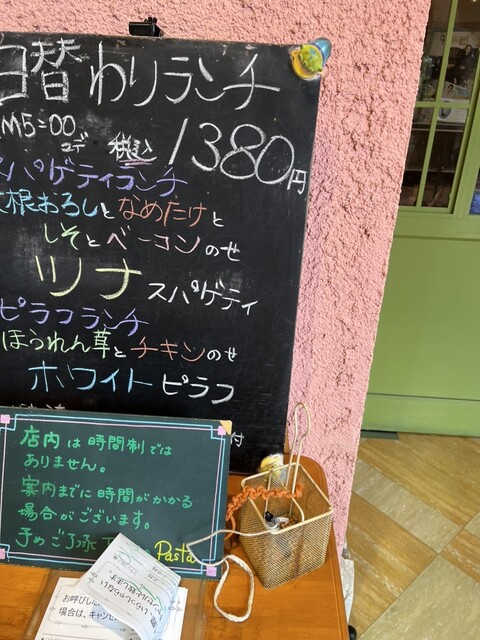 日替わりランチ
PM5:00
まで 税込 1380円
スパゲティランチ
大根おろしとなめたけと
しそとベーコンのせ
ツナ スパゲティ
ピラフランチ
ほうれん草とチキンのせ
ホワイトピラフ
付
店内は時間制では
ありません。
案内までに時間がかかる
場合がございます。
予めご了承 Pasta
お呼びし
場合は、キャンセ